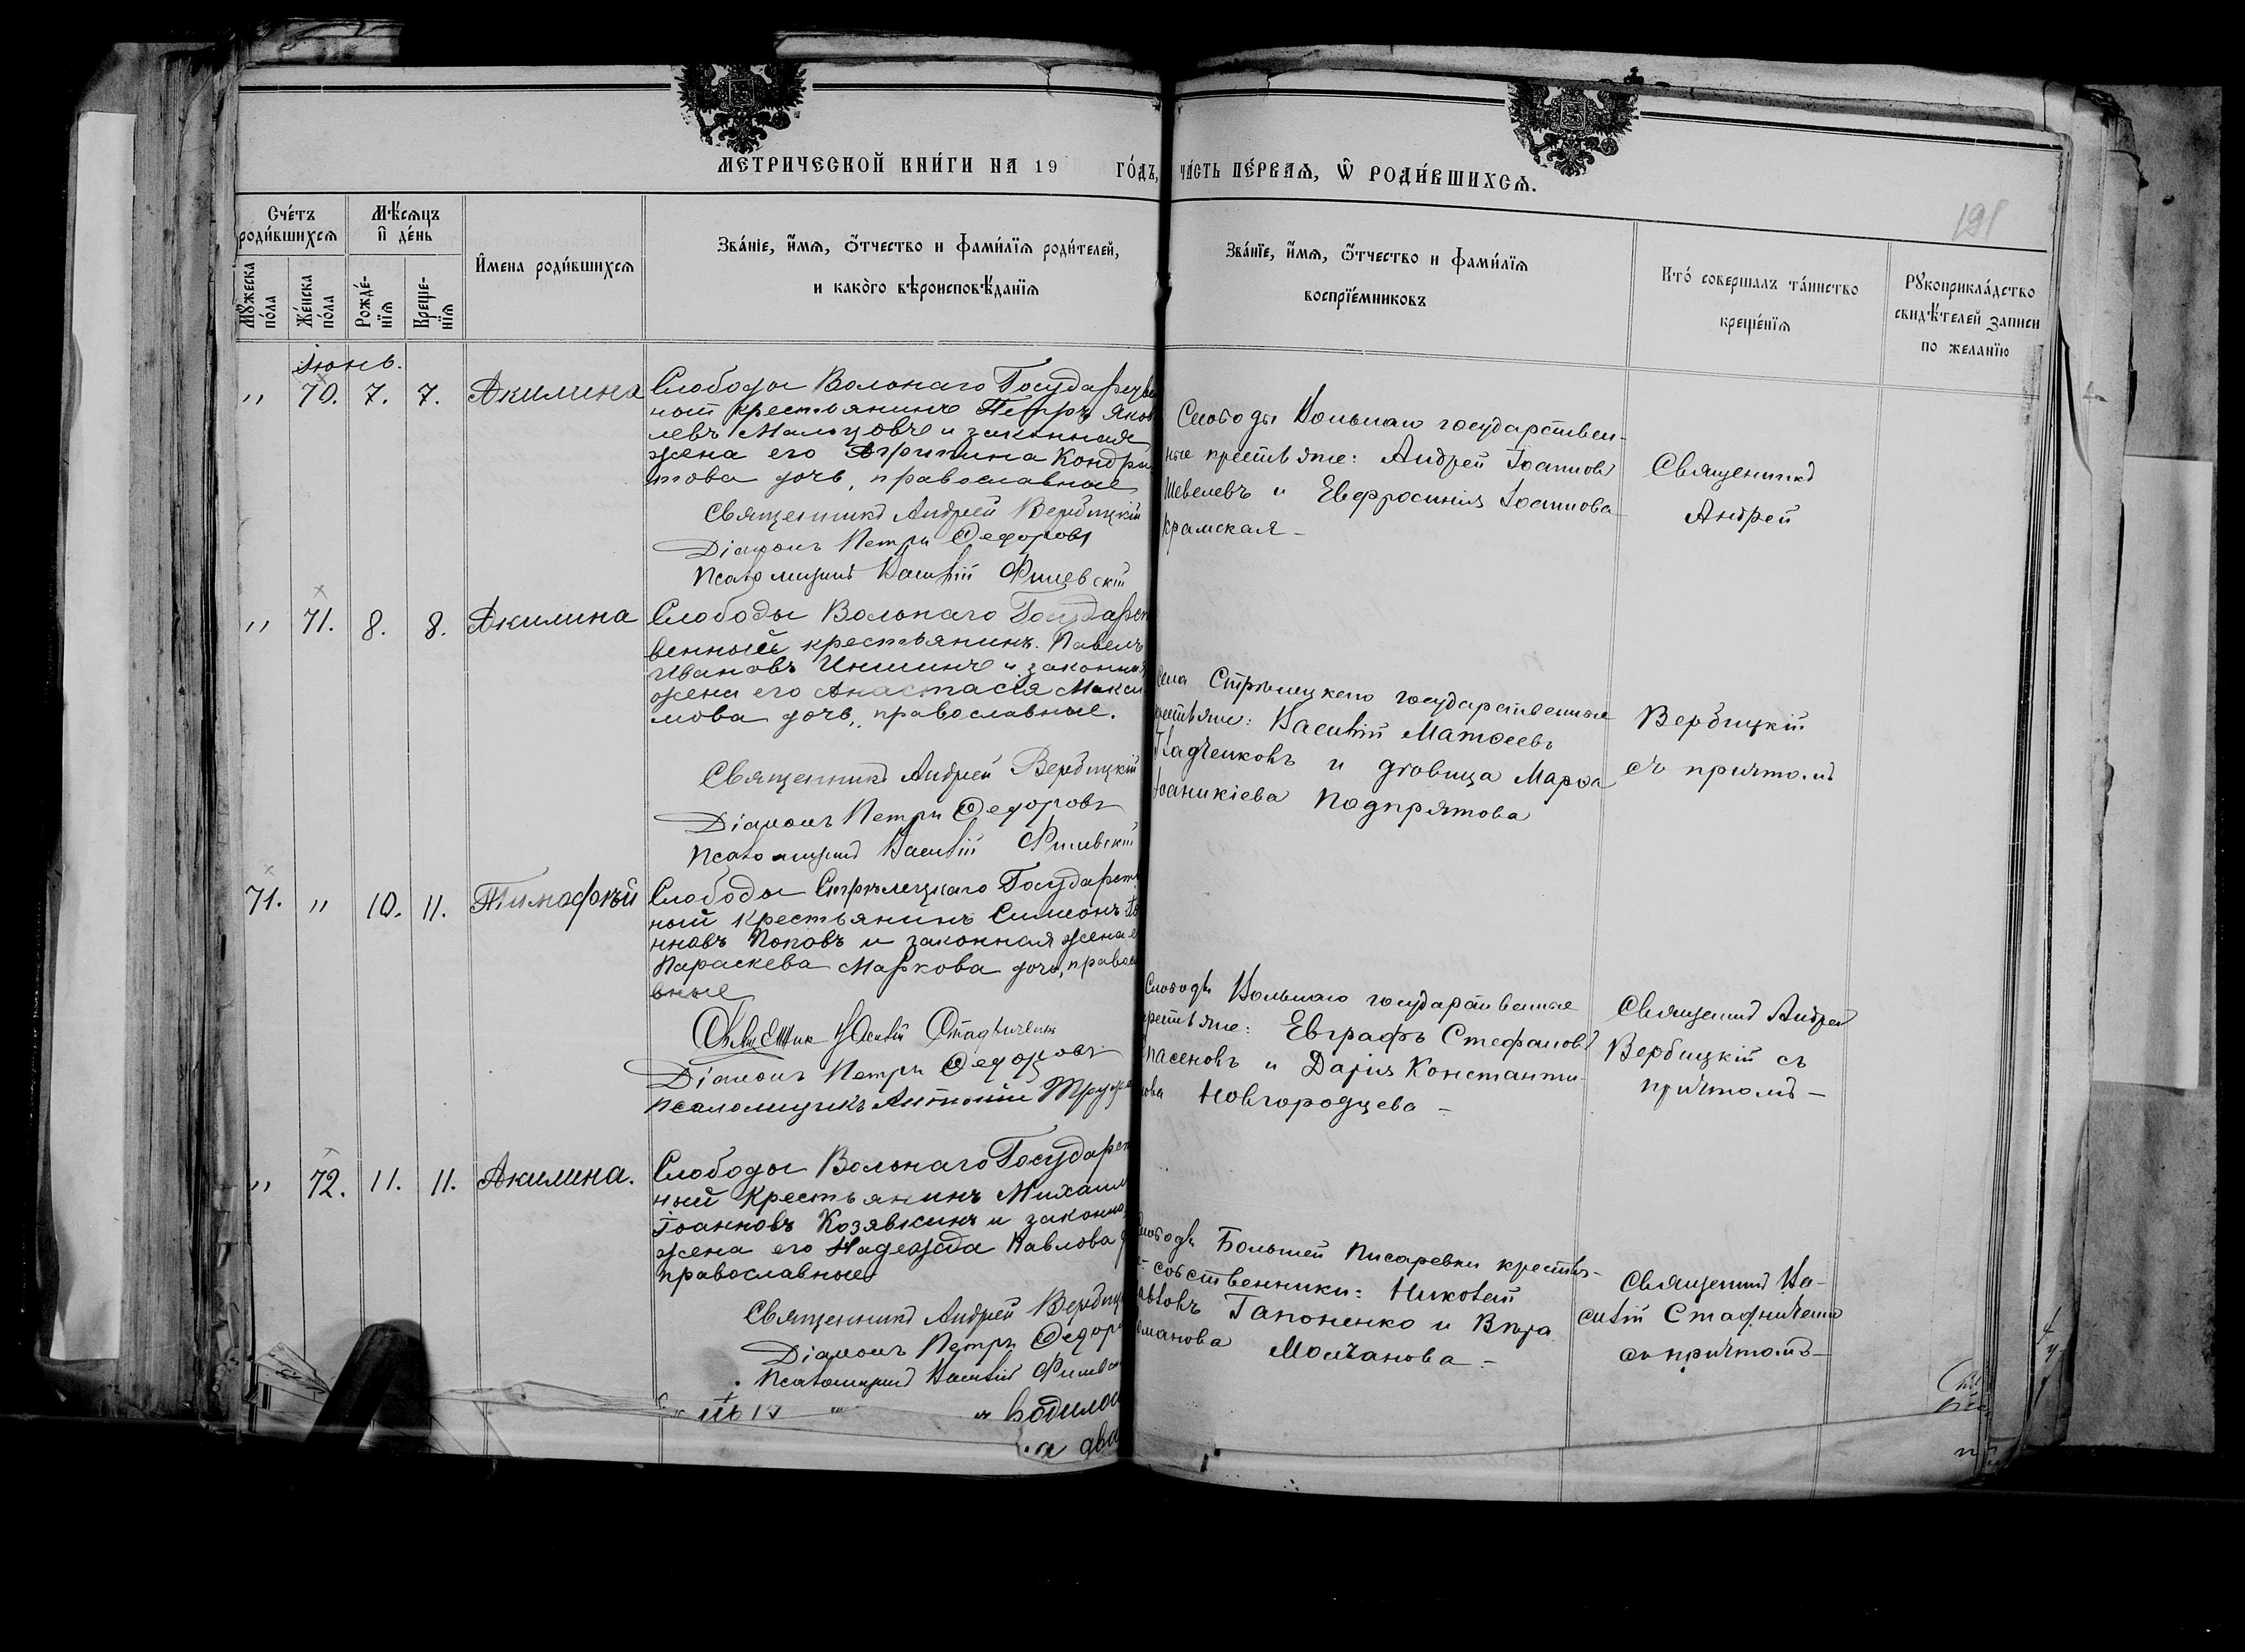 МЕТРИЧЕСКОЙ КНИ́ГИ НА 19 ГО́ДЪ, ЧА́СТЬ ПЕ́РВАЯ, Ѿ РОДИ́ВШИХСЯ.
191
Сче́тъ роди́вшихся
Мѣ́сяцъ и҆ де́нь
И҆мена роди́вшихся
Зва́ніе, и҆́мя, ѻ҆́тчество и фами́лія роди́телей,
и како́го вѣроисповѣ́данія
Мꙋ́жеска по́ла
Же́нска по́ла
Рожде́нія
Креще́нія
Зва́ніе, и҆́мя, ѻ҆́тчество и фами́лія
воспріе́мниковъ
Кто́ соверша́лъ та́инство
креще́нія
Рꙋкоприкла́дство
свидѣ́телей записи
по жела́нію
Іюнь.
" 70. 7. 7. Акилина
Слободы Вольнаго Государствен
ный крестьянинъ Петръ Яков
левъ Мальцовъ и законная
жена его Агрипина Кондра
това дочь, православные
Священникъ Андрей Вербицкій
Діаконъ Петръ Ѳедоровъ
Псаломщикъ Василій
Слободы Вольнаго государствен-
ные крестьяне: Андрей Іоанновъ
Шевелевъ и Евфросинія Іоаннова
Крамская –
Священникъ
Андрей
" 71. 8. 8. Акилина
Слободы Вольнаго Государст
венный крестьянинъ Павелъ
Ивановъ Иншинъ и законная
жена его Анастасія Макси
мова дочь, православные.
Священникъ Андрей Вербицкій
Діаконъ Петръ Ѳедоровъ
Псаломщикъ Василій
Села Стрѣлецкаго государственные
крестьяне: Василій Матѳеевъ
и дѣвица Марѳа
Іоаникіева Подпрятова
Вербицкій
съ причтомъ
71. " 10. 11. Тимофѣй
Слободы Стрѣлецкаго Государст
ный крестьянинъ Симеонъ Іоа
нновъ Поповъ и законная жена е
Параскева Маркова дочь, правосла
вные
Священник Василій
Діаконъ Петръ Ѳедоровъ
Псаломщикъ Антоній
Слободы Вольнаго государственные
крестьяне: Евграфъ Стефановъ
и Дарія Константи
нова Новгородцева –
Священникъ Андрей
Вербицкій съ
причтомъ –
" 72. 11. 11. Акилина.
Слободы Вольнаго Государст
ный крестьянинъ Михаил
Іоанновъ Козявкинъ и законна
жена его Надежда Павлова д
православные
Священникъ Андрей Вербицк
Діаконъ Петръ Ѳедоро
Псаломщикъ Василій
Слободы Большей Писаревки крестья-
не собственники: Николай
Павловъ Гапоненко и Вѣра
Романова Молчанова –
Священникъ Ва-
силій
съ причтомъ –